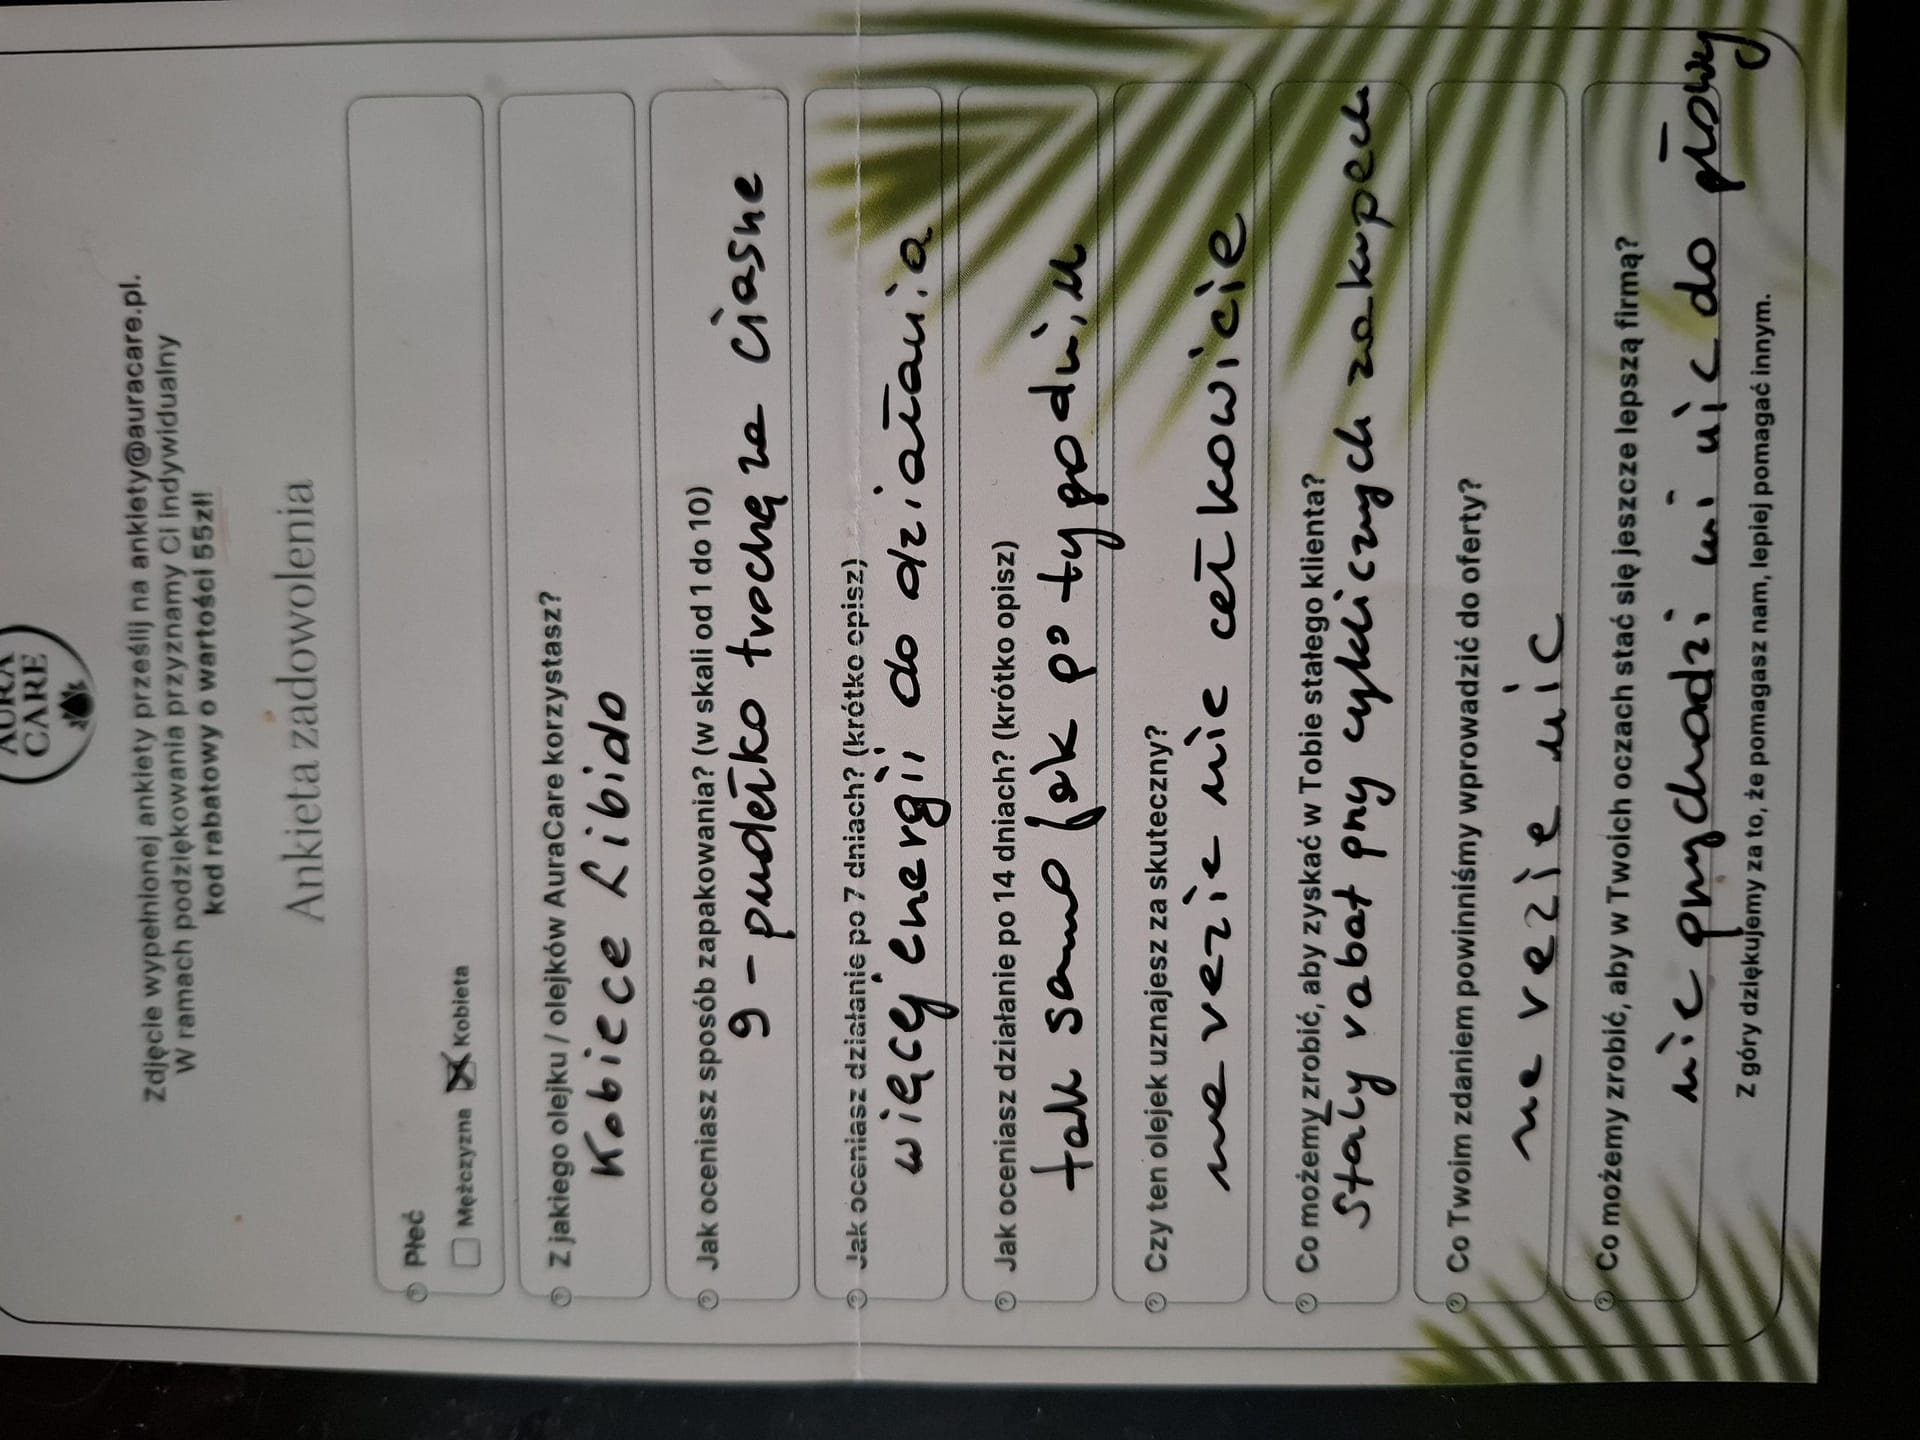 AURA
CARE
Zdjęcie wypełnionej ankiety prześlij na ankiety@auracare.pl.
W ramach podziękowania przyznamy Ci indywidualny
kod rabatowy o wartości 55zł!
Ankieta zadowolenia
Płeć
Mężczyzna Kobieta
Z jakiego olejku / olejków AuraCare korzystasz?
Kobiece Libido
Jak oceniasz sposób zapakowania? (w skali od 1 do 10)
9 - pudełko trochę za ciasne
Jak oceniasz działanie po 7 dniach? (krótko opisz)
więcej energii do działania
Jak oceniasz działanie po 14 dniach? (krótko opisz)
tak samo jak po tygodniu
Czy ten olejek uznajesz za skuteczny?
na razie nie całkowicie
Co możemy zrobić, aby zyskać w Tobie stałego klienta?
Stały rabat przy cyklicznych zakupach
Co Twoim zdaniem powinniśmy wprowadzić do oferty?
na razie nic
Co możemy zrobić, aby w Twoich oczach stać się jeszcze lepszą firmą?
nie przychodzi mi nic do głowy
Z góry dziękujemy za to, że pomagasz nam, lepiej pomagać innym.